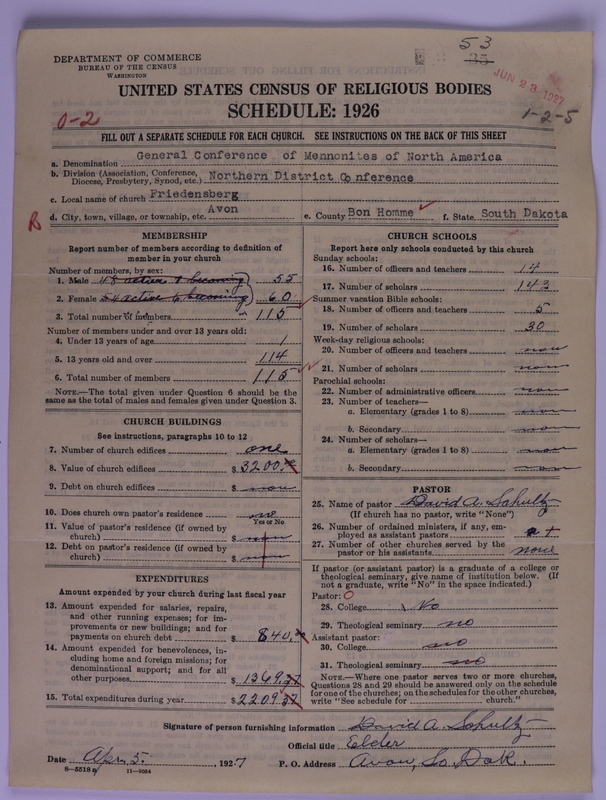 53
33
DEPARTMENT OF COMMERCE
BUREAU OF THE CENSUS
WASHINGTON
JUN 23 1927
UNITED STATES CENSUS OF RELIGIOUS BODIES
SCHEDULE: 1926
0-2
1-2-5
FILL OUT A SEPARATE SCHEDULE FOR EACH CHURCH. SEE INSTRUCTIONS ON THE BACK OF THIS SHEET
a. Denomination General Conference of Mennonites of North America
b. Division (Association, Conference, Diocese, Presbytery, Synod, etc.) Northern District Conference
c. Local name of church Friedensberg
R d. City, town, village, or township, etc. Avon e. County Bon Homme f. State South Dakota
MEMBERSHIP
Report number of members according to definition of
member in your church
Number of members, by sex:
1. Male 48 active & becoming) 55
2. Female 54 active & becoming) 60
3. Total number of members 115
Number of members under and over 13 years old:
4. Under 13 years of age 1
5. 13 years old and over 114
6. Total number of members 115
NOTE.—The total given under Question 6 should be
same as the total of males and females given under Question 3.
CHURCH BUILDINGS
See instructions, paragraphs 10 to 12
7. Number of church edifices one
8. Value of church edifices $ 3200
9. Debt on church edifices $
10. Does church own pastor's residence
Yes or No
11. Value of pastor's residence (if owned by
church) $
12. Debt on pastor's residence (if owned by
church) $
EXPENDITURES
Amount expended by your church during last fiscal year
13. Amount expended for salaries, repairs,
and other running expenses; for im-
provements or new buildings; and for
payments on church debt $ 840
14. Amount expended for benevolences, in-
cluding home and foreign missions; for
denominational support; and for all
other purposes $ 1369.37
15. Total expenditures during year $ 2209.37
CHURCH SCHOOLS
Report here only schools conducted by this church
Sunday schools:
16. Number of officers and teachers 14
17. Number of scholars 143
Summer vacation Bible schools:
18. Number of officers and teachers 5
19. Number of scholars 30
Week-day religious schools:
20. Number of officers and teachers
21. Number of scholars
Parochial schools:
22. Number of administrative officers
23. Number of teachers—
a. Elementary (grades 1 to 8)
b. Secondary
24. Number of scholars—
a. Elementary (grades 1 to 8)
b. Secondary
PASTOR
25. Name of pastor David A. Schultz
(If church has no pastor, write "None")
26. Number of ordained ministers, if any, em-
ployed as assistant pastors
27. Number of other churches served by the
pastor or his assistants none
If pastor (or assistant pastor) is a graduate of a college or
theological seminary, give name of institution below. (If
not a graduate, write "No" in the space indicated.)
Pastor: 0
28. College No
29. Theological seminary no
Assistant pastor:
30. College no
31. Theological seminary no
NOTE.—Where one pastor serves two or more churches,
Questions 28 and 29 should be answered only on the schedule
for one of the churches; on the schedules for the other churches,
write "See schedule for church."
Signature of person furnishing information David A. Schultz
Official title Elder
Date Apr. 5. 1927 P. O. Address Avon, So. Dak.
8—5518 11—9034